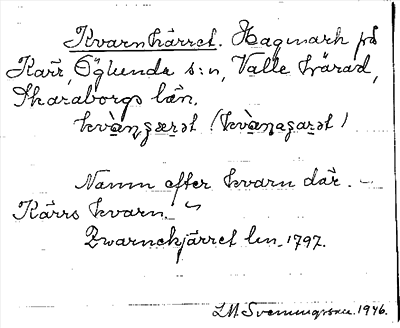 Kvarnkärret. Hagmark på
Karr, Öglunda s:n, Valle härad,
Skaraborgs län.
kvàṇɡærət (kvàṇaɡarət)
Namn efter kvarn där.
Kärrs kvarn.
Qvarnekjärret len. 1797.
LM Svenungsson. 1946.